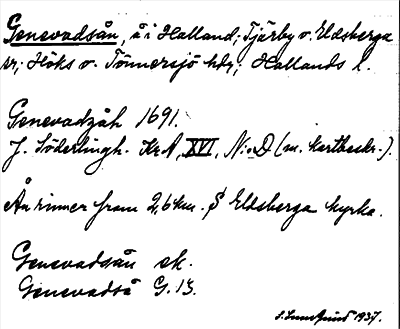 Genevadsån, å i Halland; Tjärby o. Eldsberga
sr; Höks o. Tönnersjö hdr; Hallands l.
Genevadzåh 1691.
J. Söderlingh. KrA, XVI, N:o D (m. kartbeskr.).
Ån rinner fram 2,6 km. S Eldsberga kyrka.
Genevadsån ek.
Genevadså G.13.
1937.